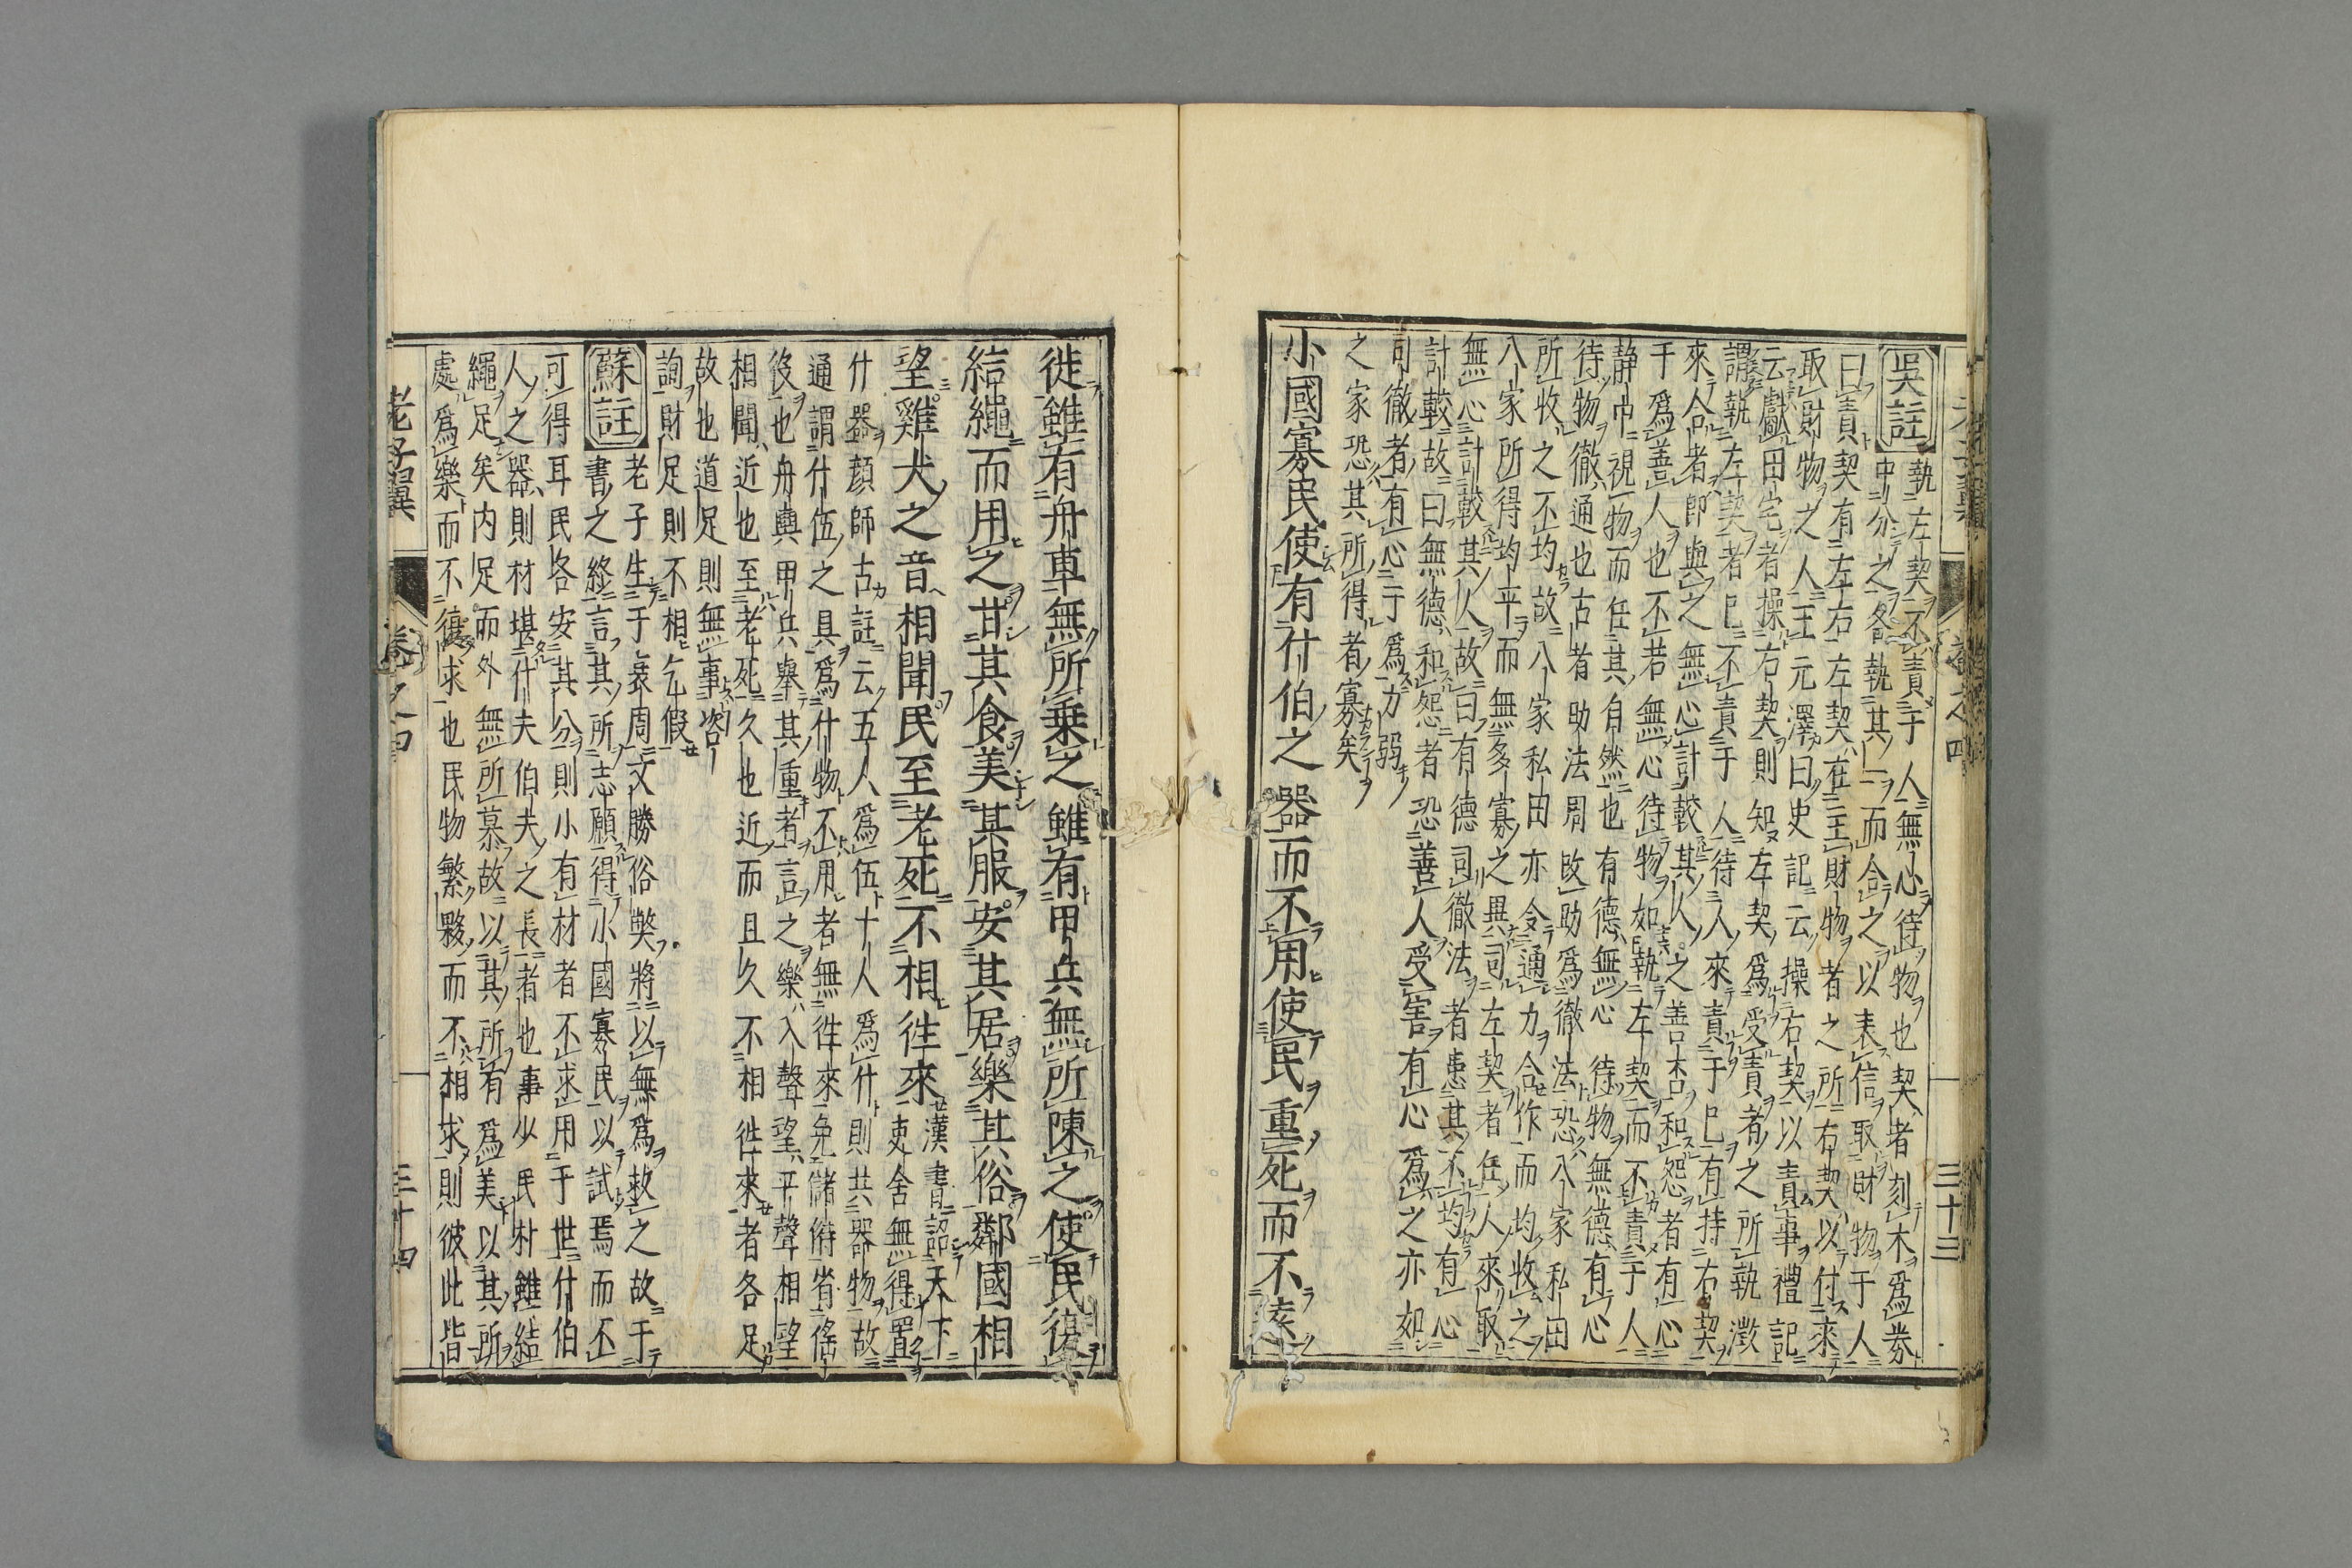 吳註
執左契不責于人無心待物也契者刻木爲券
中分之各執其一而合之以表信取財物于人
曰責契有左右左契在主財物者之所右契以付來
取財物之人王元澤曰史記云操右契以責事禮記
云獻田宅者操右契則知左契爲受責者之所執澂
謂執左契者已不責于人待人來責于已有持右契
來合者即與之無心計較其人之善否和怨者有心
于爲善人也不若無心待物如執左契而不責于人
靜中視物而任其自然也有德無心待物無德有心
待物徹通也古者助法周改助爲徹法恐八家私田
所收之不均故八家私田亦令通力合作而均收之
八家所得均平而無多寡之異司左契者任人來取
無心計較其人故曰有德司徹法者患其不均有心
計較故曰無德和怨者恐善人受害有心爲之亦如
司徹者有心于爲力弱
之家恐其所得者寡矣
小國寡民使有什伯之器而不用使民重死而不遠
老子翼
卷之四
三十三
徙雖有舟車無所乗之雖有甲兵無所陳之使民復
結繩而用之甘其食美其服安其居樂其俗鄰國相
望雞犬之音相聞民至老死不相徃來
漢書詔天下
吏舍無得置
什器顔師古註云五人爲伍十人爲什則共器物故
通謂什伍之具爲什物不用者無徃來免儲偫省徭
役也舟輿甲兵舉其重者言之樂入聲望平聲相望
相聞近也至老死久也近而且久不相徃來者各足
故也道足則無事咨
詢財足則不相乞假
蘇註
老子生于衰周文勝俗獘將以無爲救之故于
書之終言其所志願得小國寡民以試焉而不
可得耳民各安其分則小有材者不求用于世什伯
人之器則材堪什夫伯夫之長者也事少民朴雖結
繩足矣内足而外無所慕故以其所有爲美以其所
處爲樂而不復求也民物繁夥而不相求則彼此皆
老子翼
卷之四
三十四